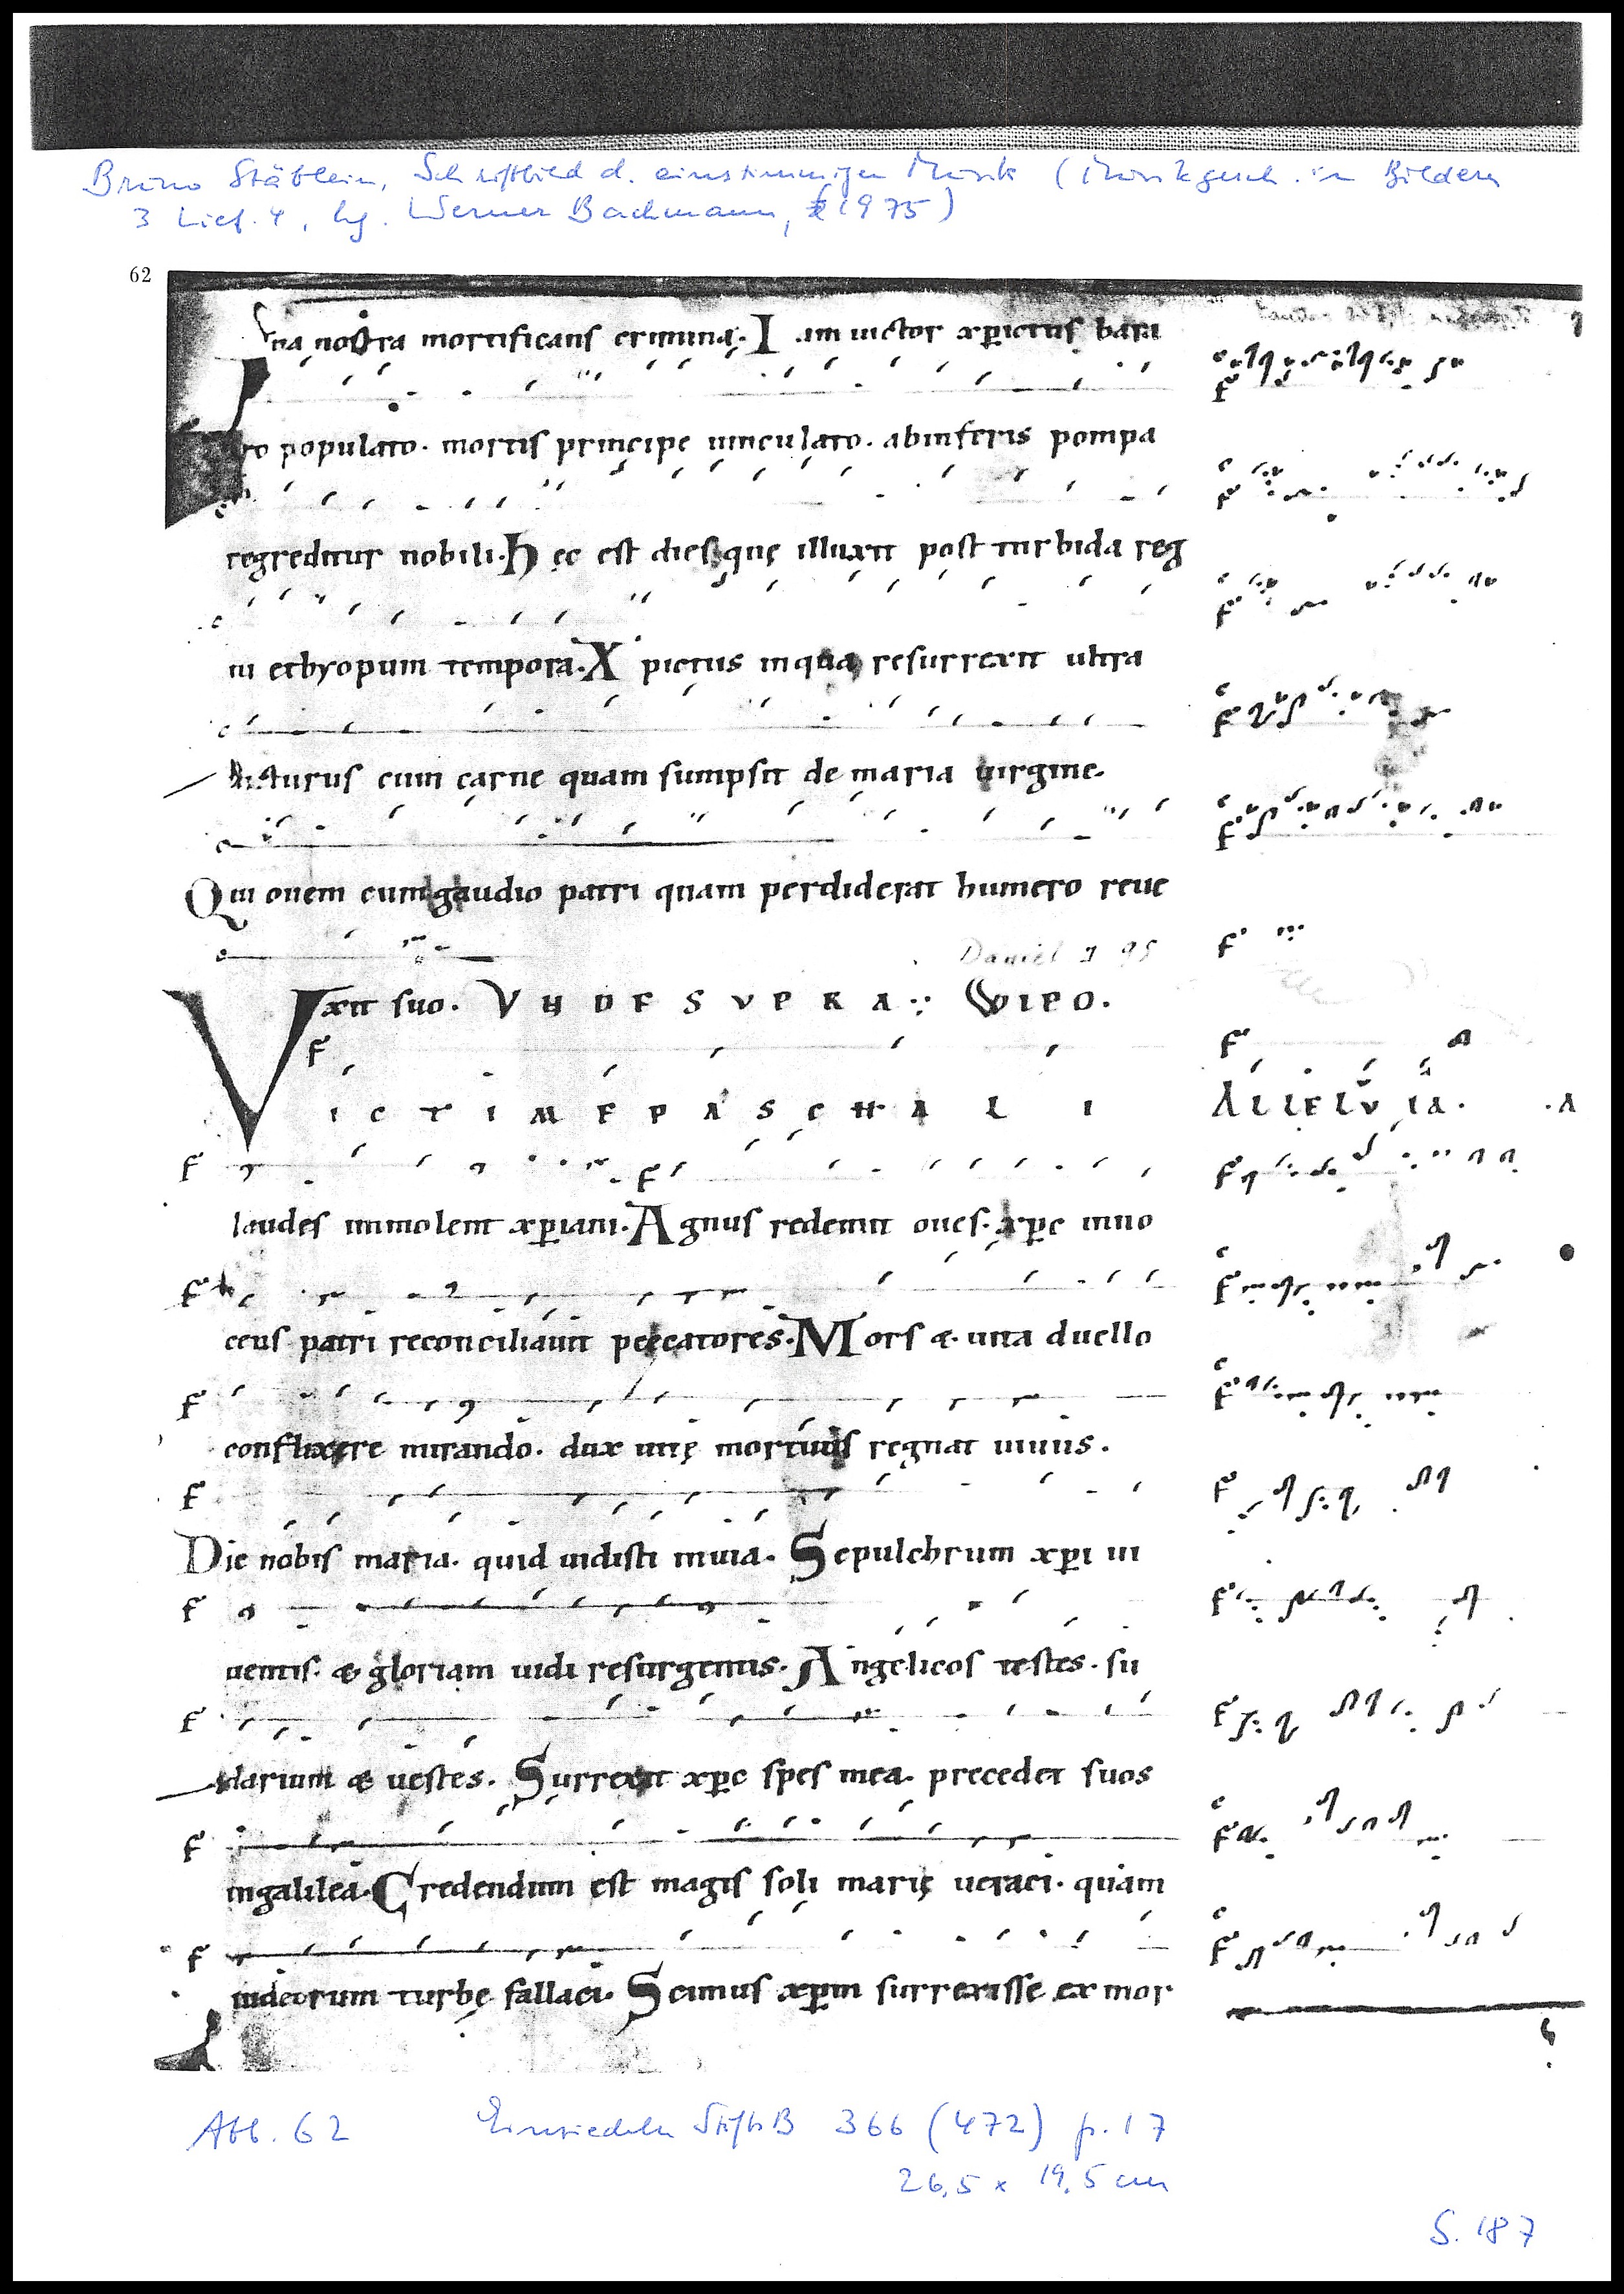 Bruno Stäblein, Schriftbild d. einstimmigen Musik (Musikgesch. in Bildern
3 Lief. 4, hg. Werner Bachmann, 1975)
62
na nostra mortificans crimina. I am uictor xp̄ictus bara
ro populato. mortis principe uinculato. abinferis pompa
regreditur nobili. H ęc est dies quę illuxit post turbida reg
ni ethyopum tempora. X pictus inqua resurrexit ultra
uicturus cum carne quam sumpsit de maria uirgine.
Qui ouem cum gaudio patri quam perdiderat humero reue
Daniel
xit suo. VNDE SVPRA. WIPO.
VICTIME PASCHALI
ALLELVIA. A
laudes immolent xp̄iani. A gnus redemit oues. xp̄c inno
cens patri reconciliauit peccatores. M ors & uita duello
conflixere mirando. dux uitę mortuus regnat uiuus.
Dic nobis maria. quid uidisti inuia. S epulchrum xp̄i ui
uentis. & gloriam uidi resurgentis. A ngelicos testes. su
darium & uestes. S urrexit xp̄c spes mea. precedet suos
ingalilea. C redendum est magis soli marię ueraci. quam
iudeorum turbę fallaci. S cimus xp̄m surrexisse ex mor
Abb. 62 Einsiedeln StiftsB 366 (472) p. 17
26,5 x 19,5 cm
S. 187